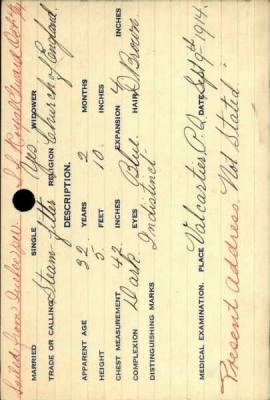 Sailed from Quebec per S.S. Royal Edward Oct 3/14
MARRIED SINGLE Yes WIDOWER
TRADE OR CALLING Steam-fitter RELIGION Church of England.
DESCRIPTION.
APPARENT AGE 32 YEARS 2 MONTHS
HEIGHT 5 FEET 10 INCHES
CHEST MEASUREMENT 42 INCHES EXPANSION 4 INCHES
COMPLEXION Dark EYES Blue HAIR D. Brown
DISTINGUISHING MARKS Indistinct
MEDICAL EXAMINATION. PLACE Valcartier, P.Q. DATE Sept 9th 1914.
Present Address. Not Stated